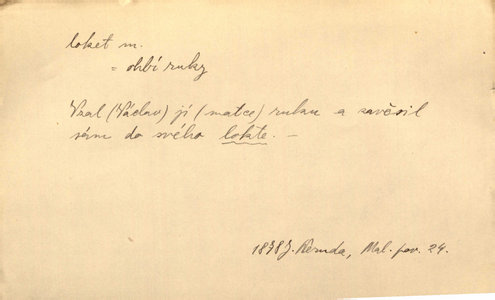 loket m.
= ohbí ruky
Vzal (Václav) jí (matce) ruku a zavěsil
sám do svého lokte. —
1878 J. Neruda, Mal. pov. 24.